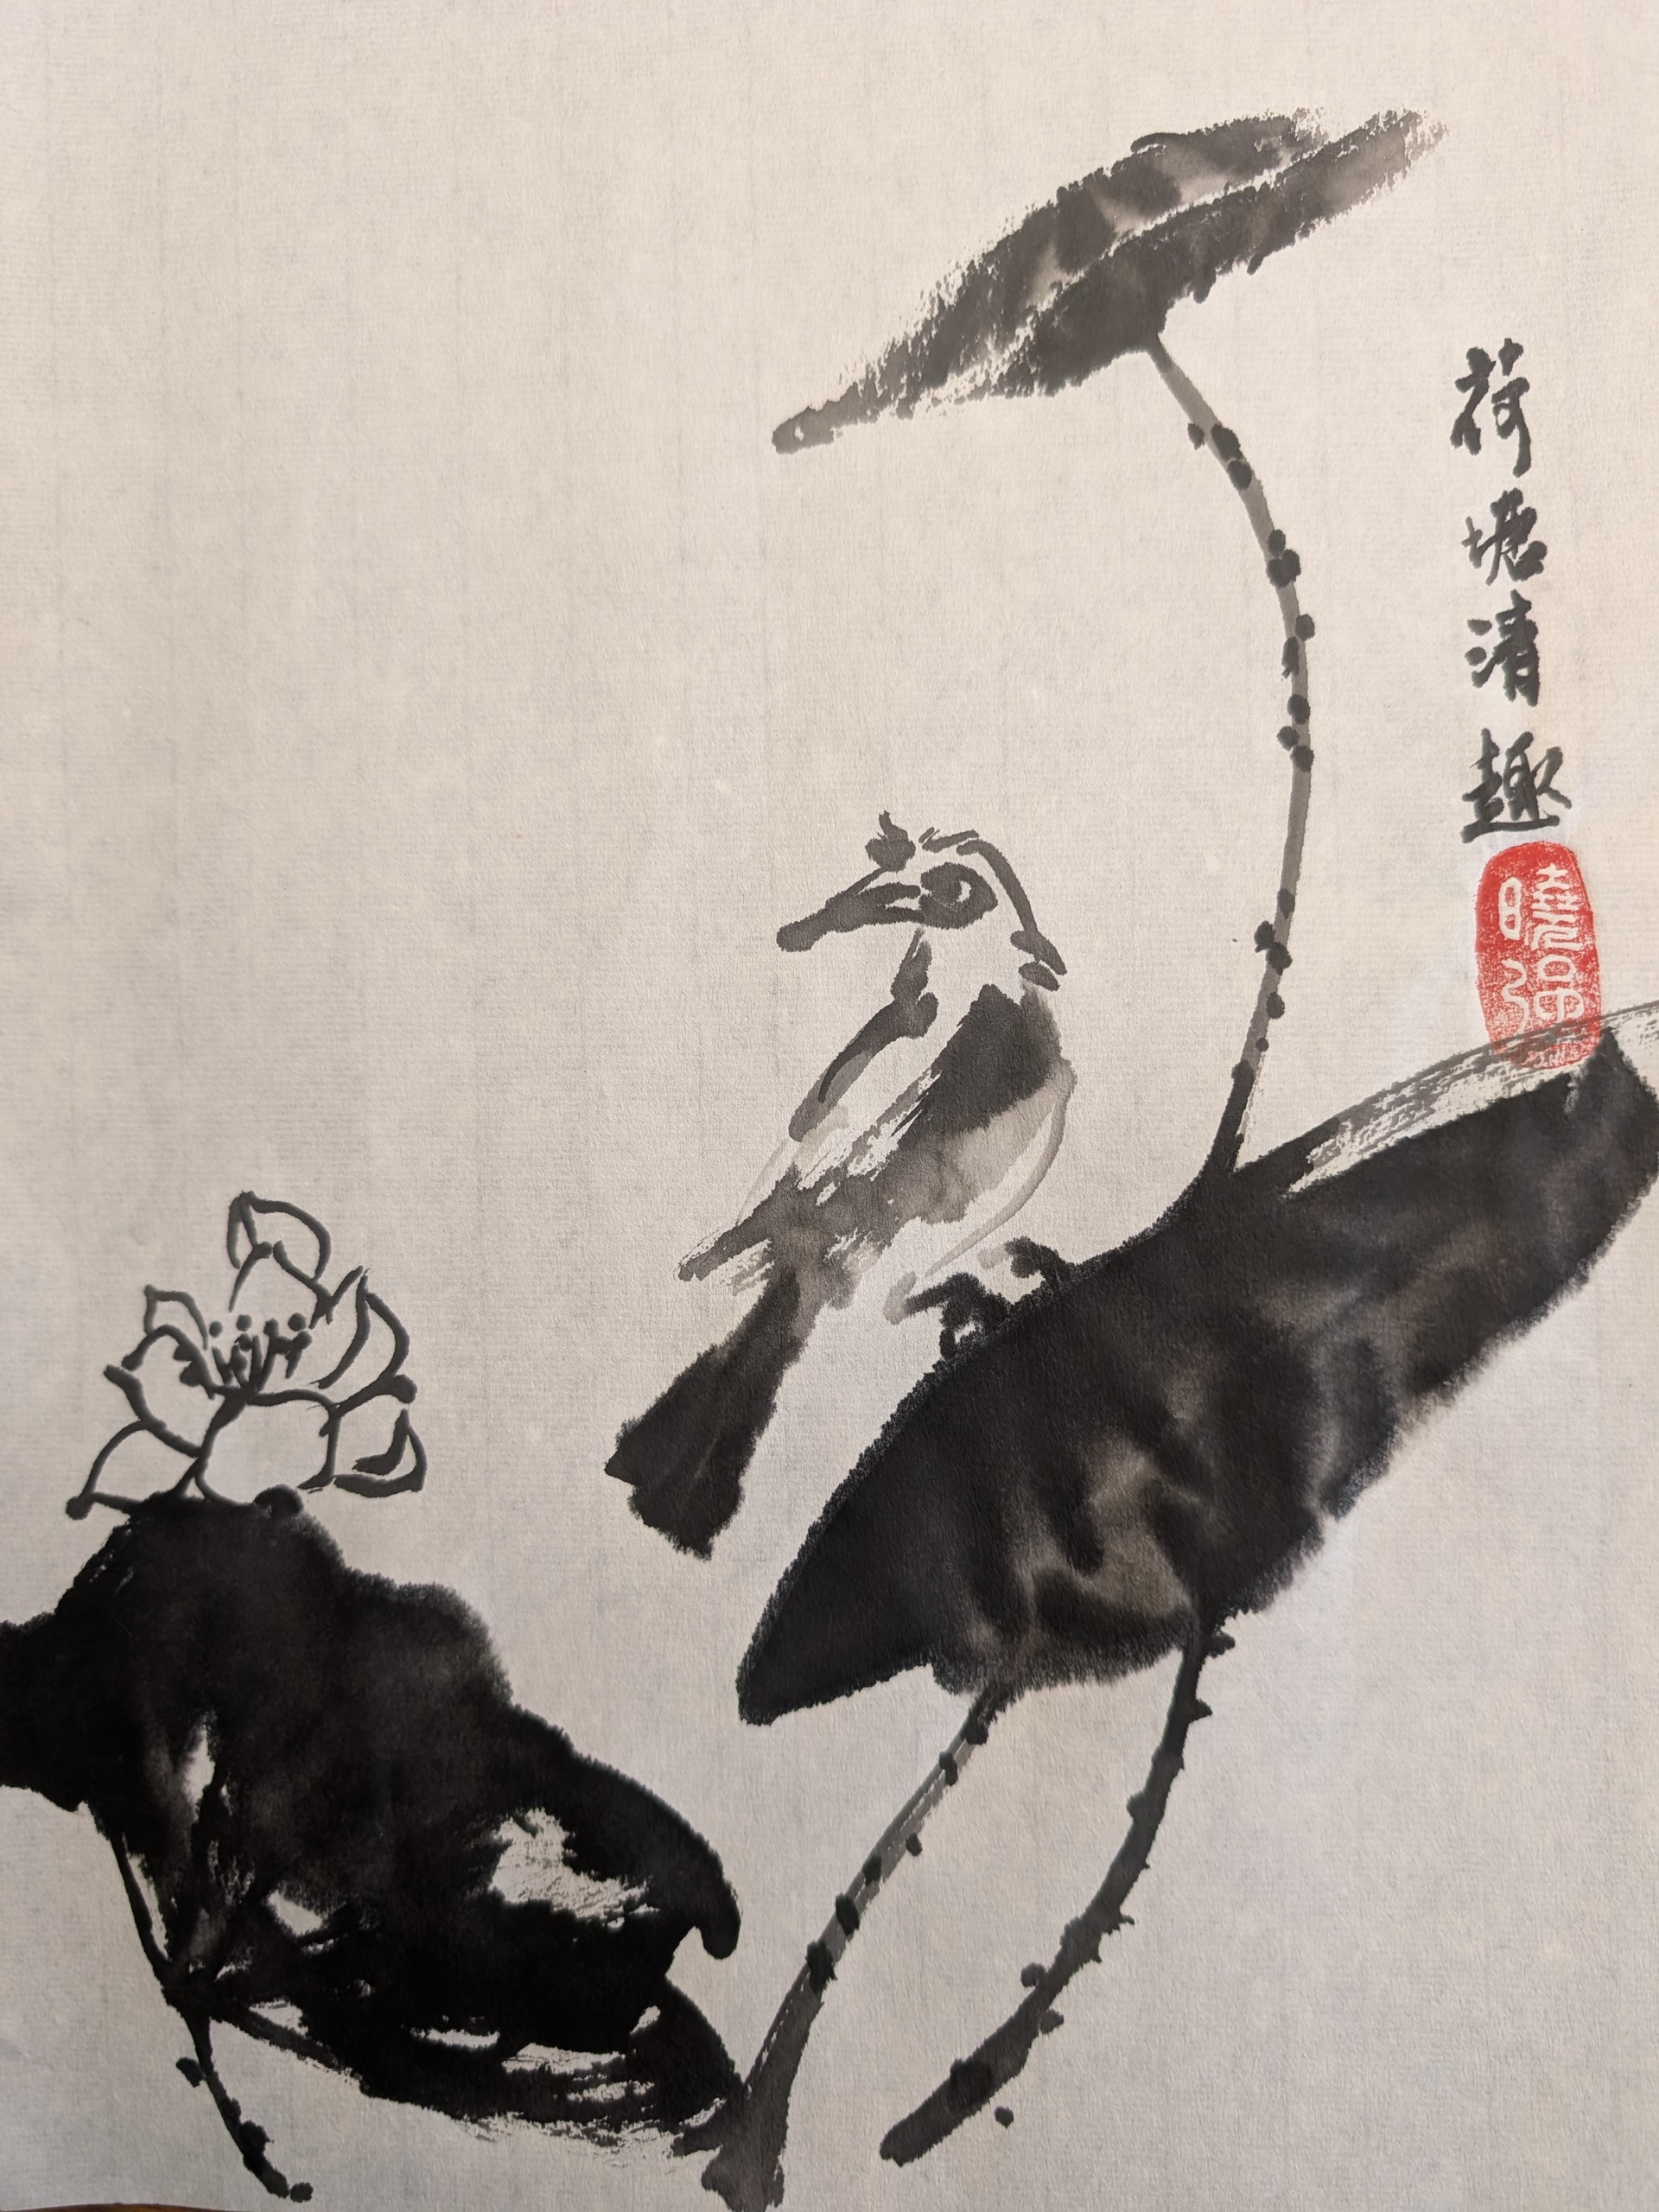 荷塘清趣
曉强